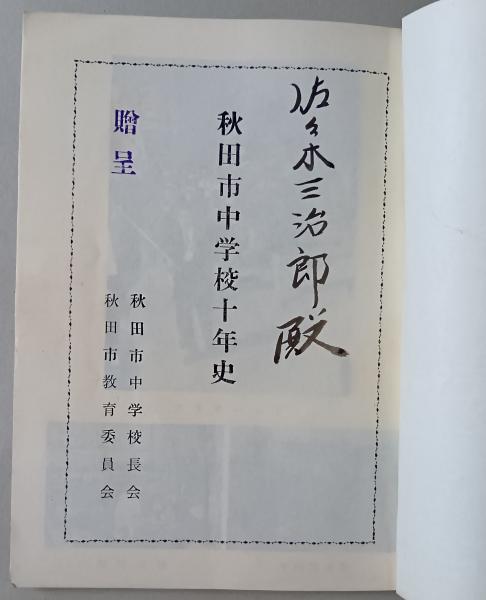 佐々木三治郎殿
秋田市中学校十年史
贈呈
秋田市中学校長会
秋田市教育委員会